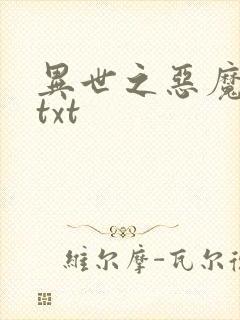 異世之惡魔
txt
維尔摩-瓦尔德